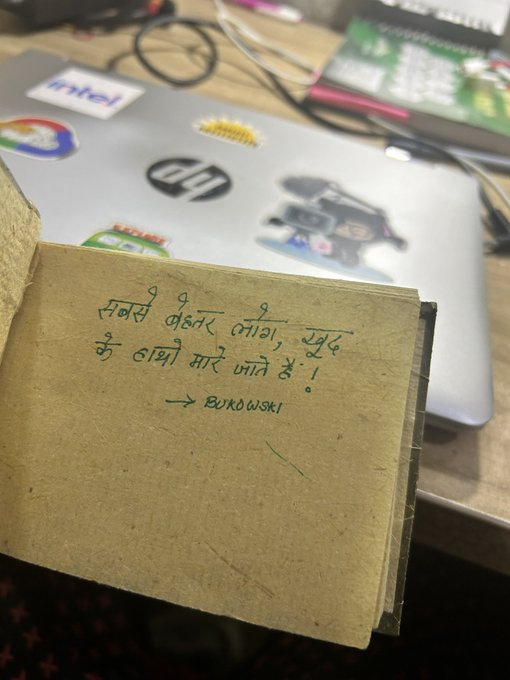 intel
hp
सबसे बेहतर लोग, खुद
के हाथों मारे जाते हैं !
→ BUKOWSKI